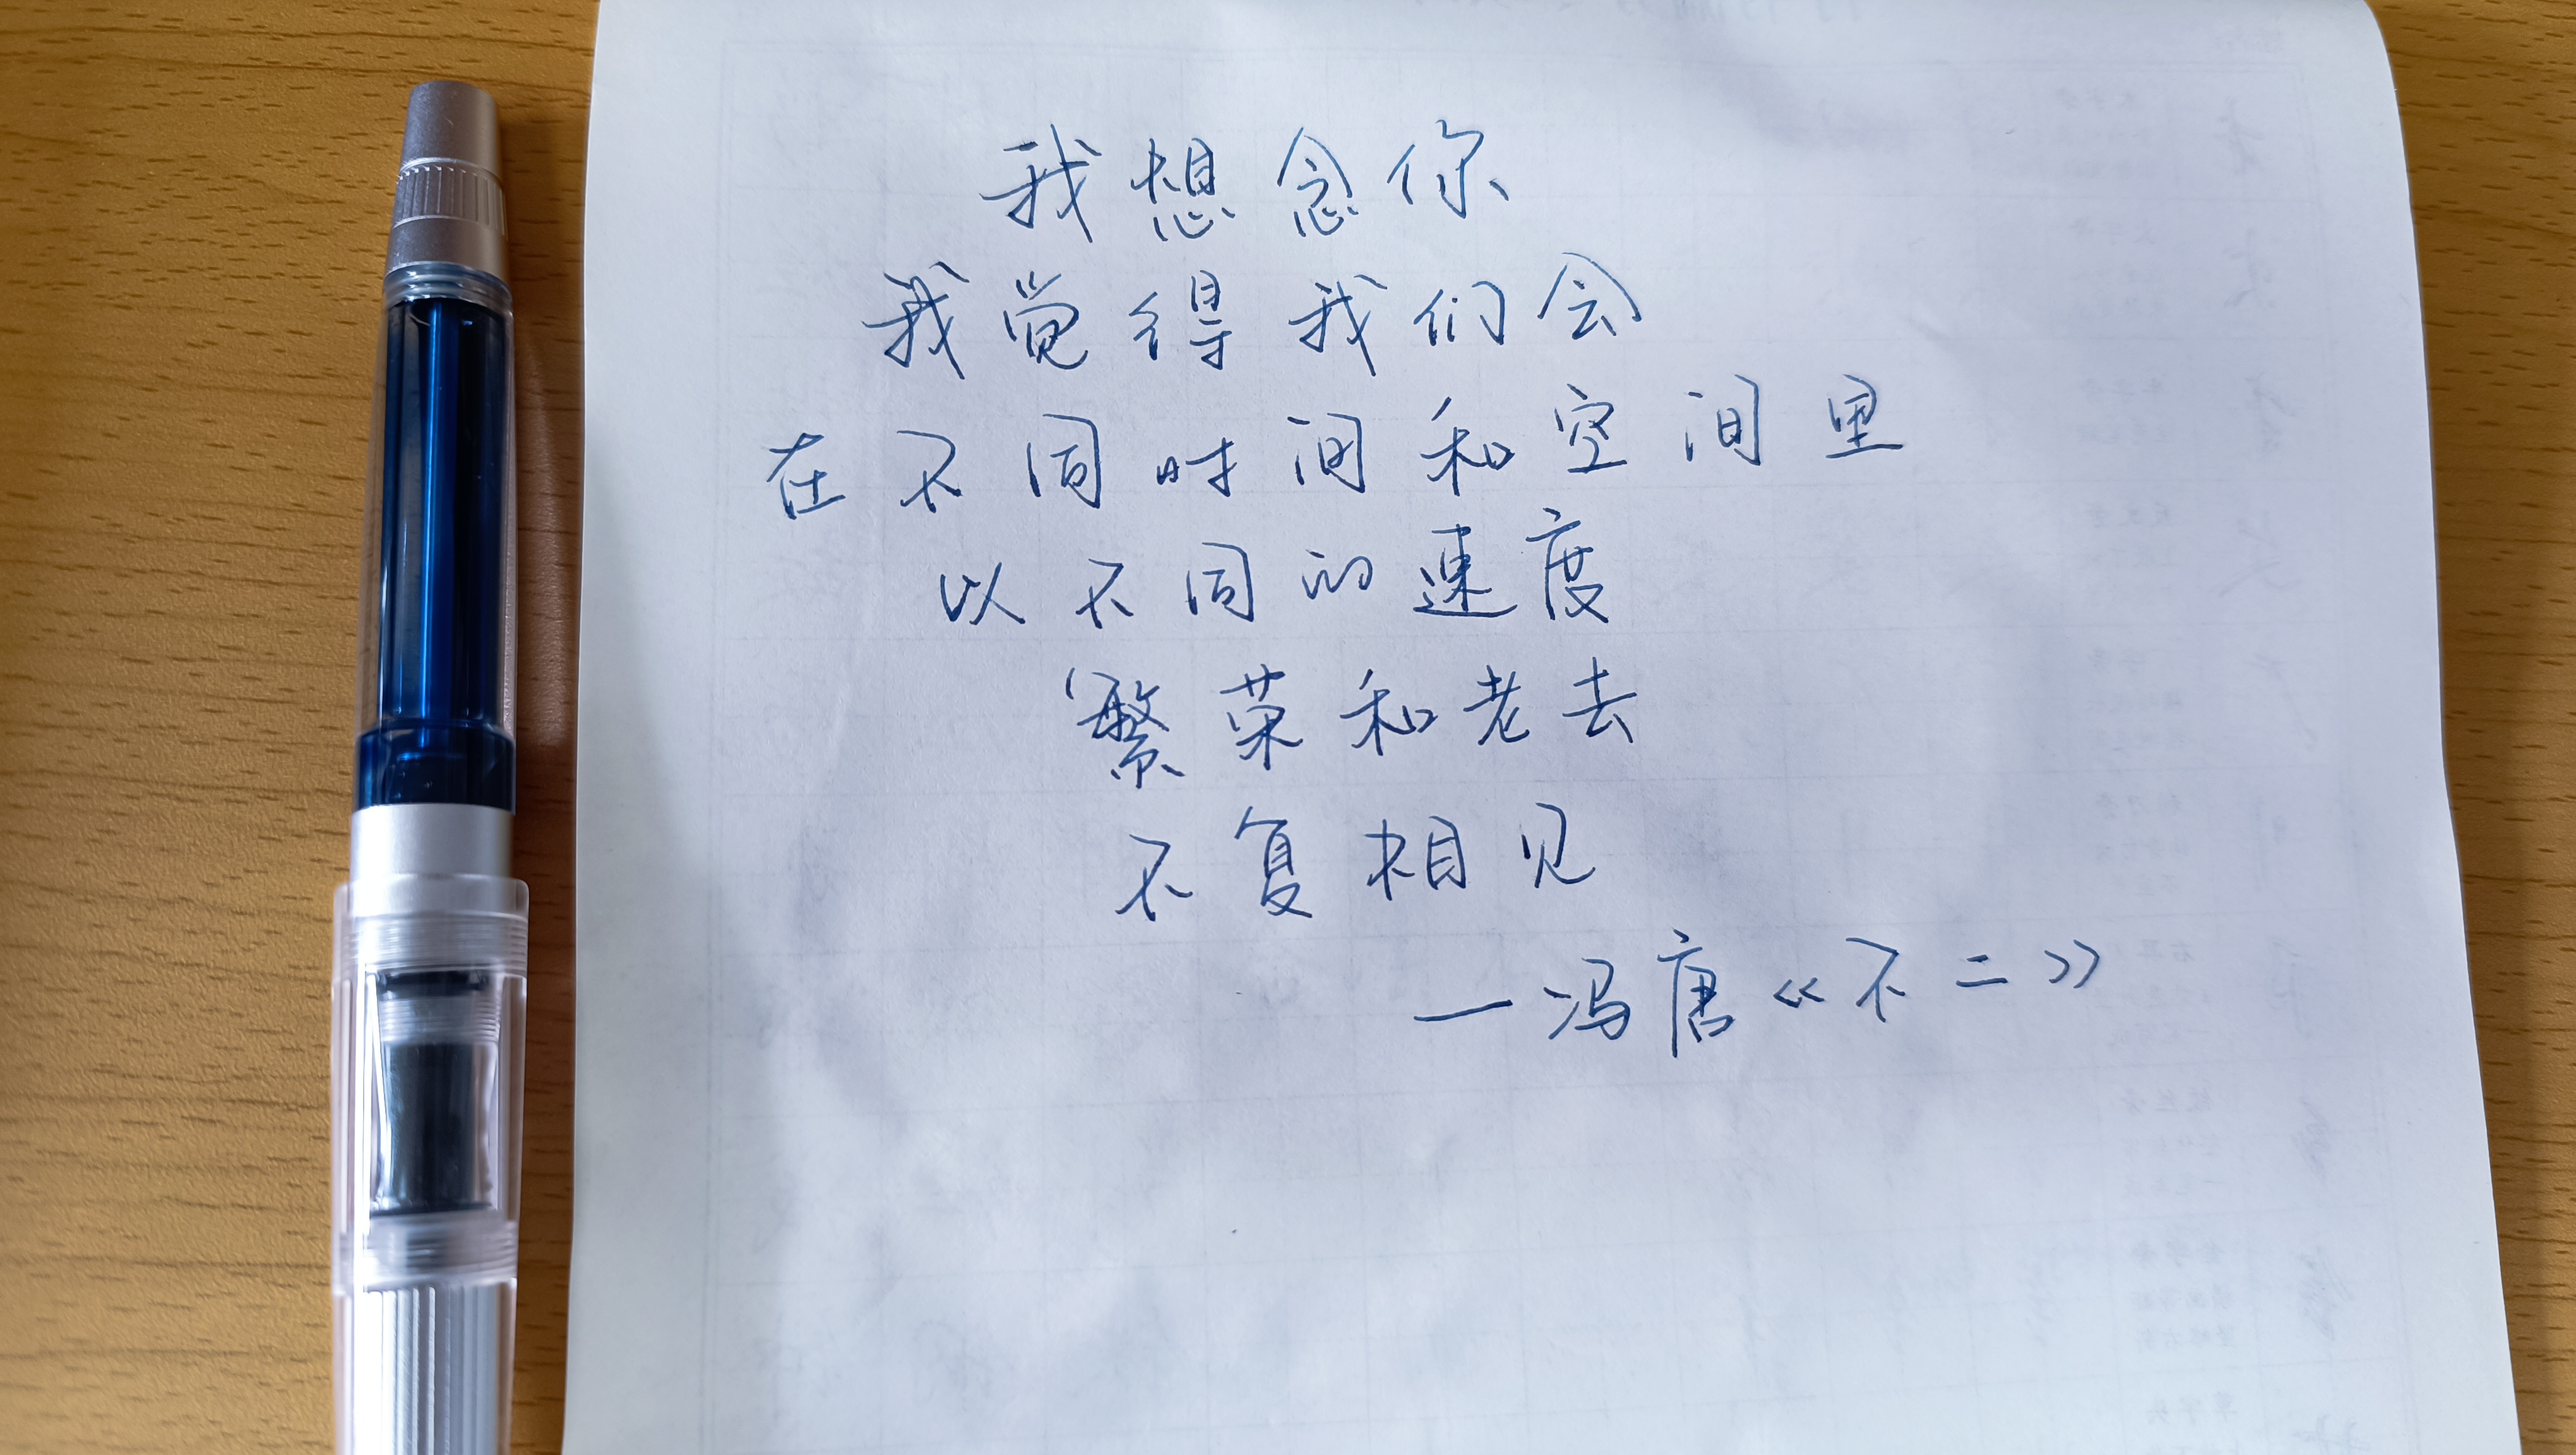 我想念你
我觉得我们会
在不同时间和空间里
以不同的速度
繁荣和老去
不复相见
—冯唐《不二》